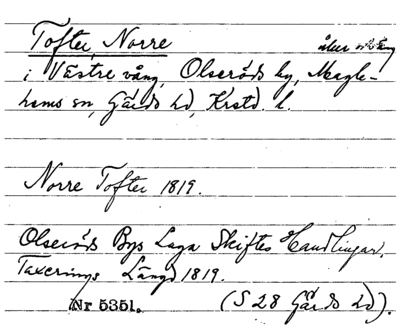 Tofter, Norre åker o äng
i Västre vång, Olseröds by, Magle-
hems sn, Gärds hd, Krstd. l.
Norre Tofter 1819.
Olseröds Bys Laga Skiftes Handlingar.
Taxerings Längd 1819.
Nr 5351. (S 28 Gärds hd).